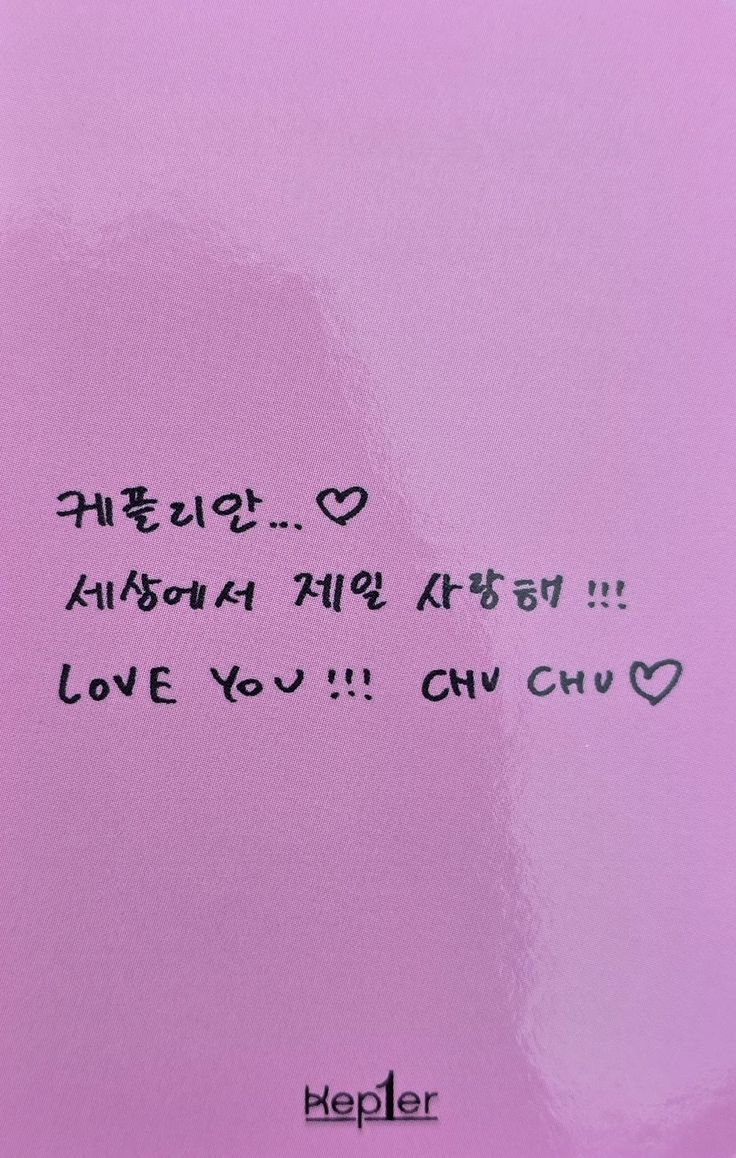 케플리안... ♡
세상에서 제일 사랑해 !!!
LOVE YOU !!! CHU CHU ♡
Kep1er